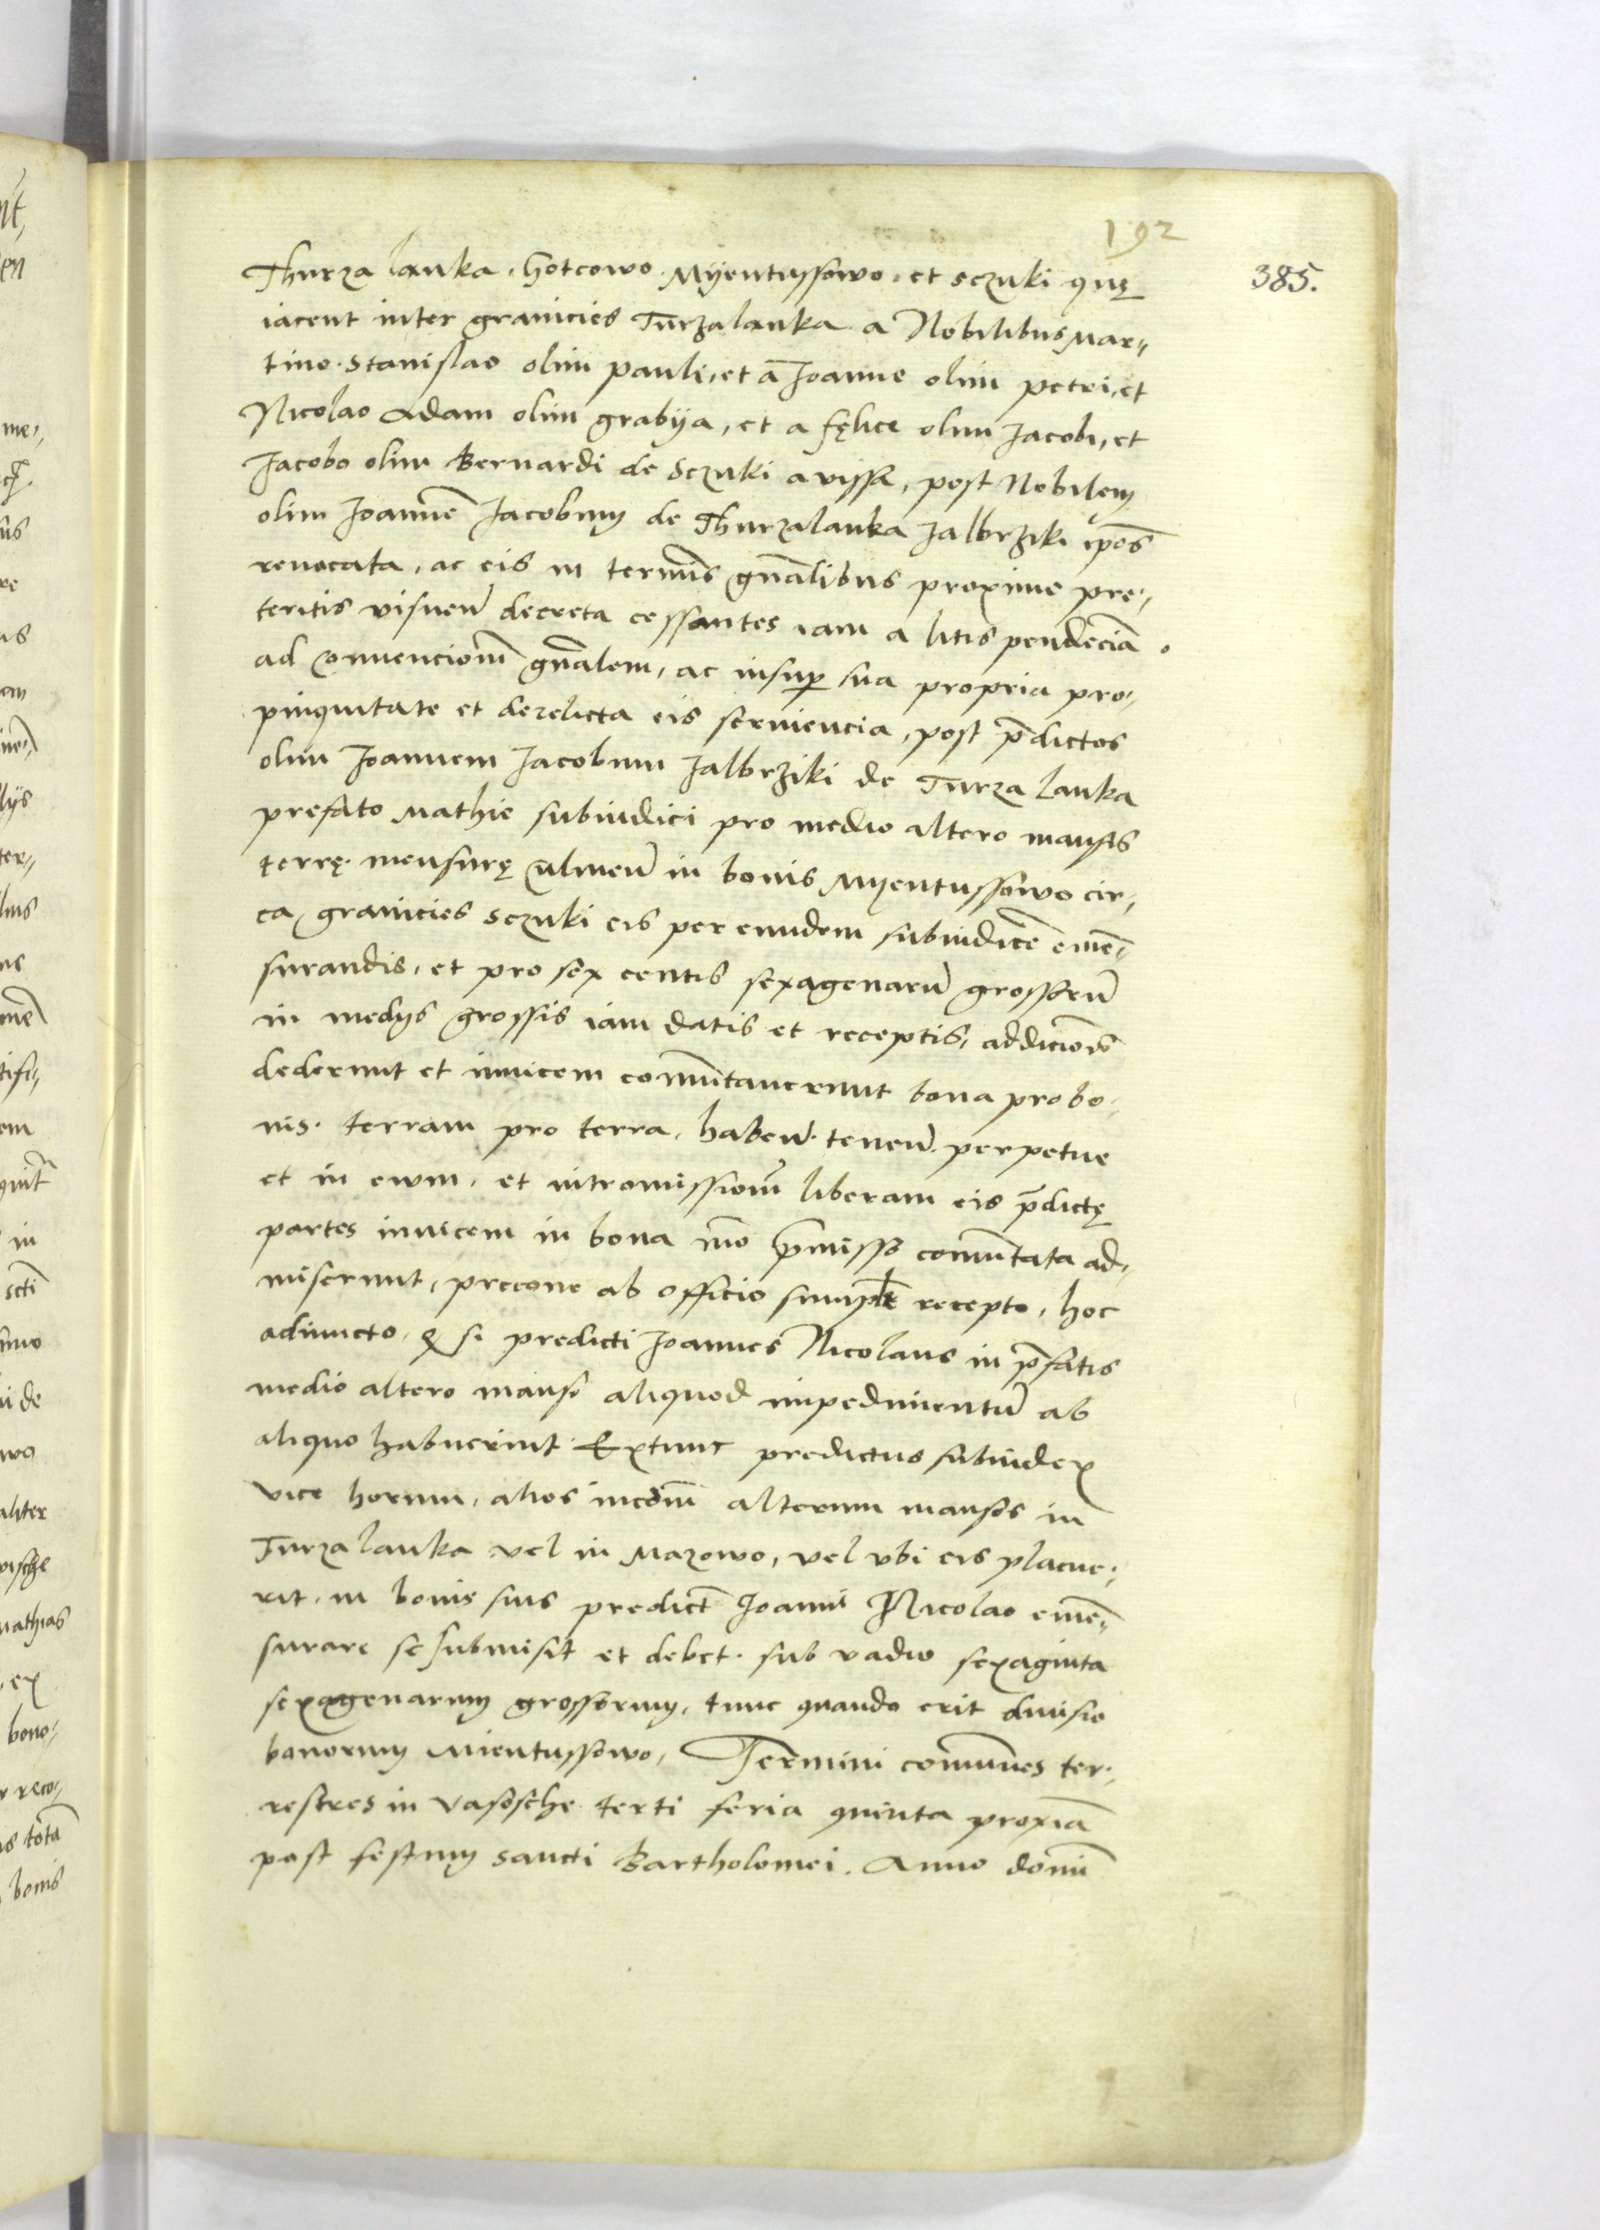 192
385.
Thurza lanka, hotcowo. Myentussowo. et sczuki quę
iacent inter granicies Turzalanka a Nobilibus Mar„
tino. Stanislao olim pauli, et a Ioanne olim petri, et
Nicolao Adam olim grabya, et a fęlice olim Jacobi, et
Jacobo olim Bernardi de Sczuki a vissa, post Nobilem
olim Joannē Jacobum de Thurzalanka Jalbrziki ip̄os
reuocata, ac eis in termīs gn̄alibus proxime pre„
teritis visuen̄ decreta cessantes iam a litis pendēcia
ad conuencionē gn̄alem, ac insup sua propria pro„
pinquitate et derelicta eis seruiencia, post p̄dictos
olim Joannem Jacobum Jalbrziki de Turza lanka
prefato Mathie subiudici pro medio altero mansis
terrę. mensurę culmen̄ in bonis Myentussowo cir„
ca granicies sczuki eis per eundem subiudicē emē„
surandis, et pro sex centis sexagenarū grossorū
in medys grossis iam datis et receptis, addicionē
dederunt et inuicem comūtauerunt bona pro bo„
nis. terram pro terra, haben̄. tenen̄. perpetue
et in ewm, et intromissionē liberam eis p̄dictę
partes inuicem in bona mō p̄misso comūtata ad„
miserunt, precone ab officio simplr recepto, hoc
adiuncto, q̨ si predicti Joannes Nicolaus in p̄fatis
medio altero manso aliquod impedimentū ab
aliquo habuerint. Extunc predictus subiudex
vice horum, alios mediū alterum mansos in
Turza lanka vel in Mazowo, vel vbi eis placue„
rit. in bonis suis predict̄ Joanni Nicolao emē„
surare se submisit et debet. sub vadio sexaginta
sexagenarum grossorum, tunc quando erit diuisio
bonorum Mientussowo, Termini comunes ter„
restres in Vasosche terti feria quinta proxīa
post festum sancti Bartholomei. Anno domī